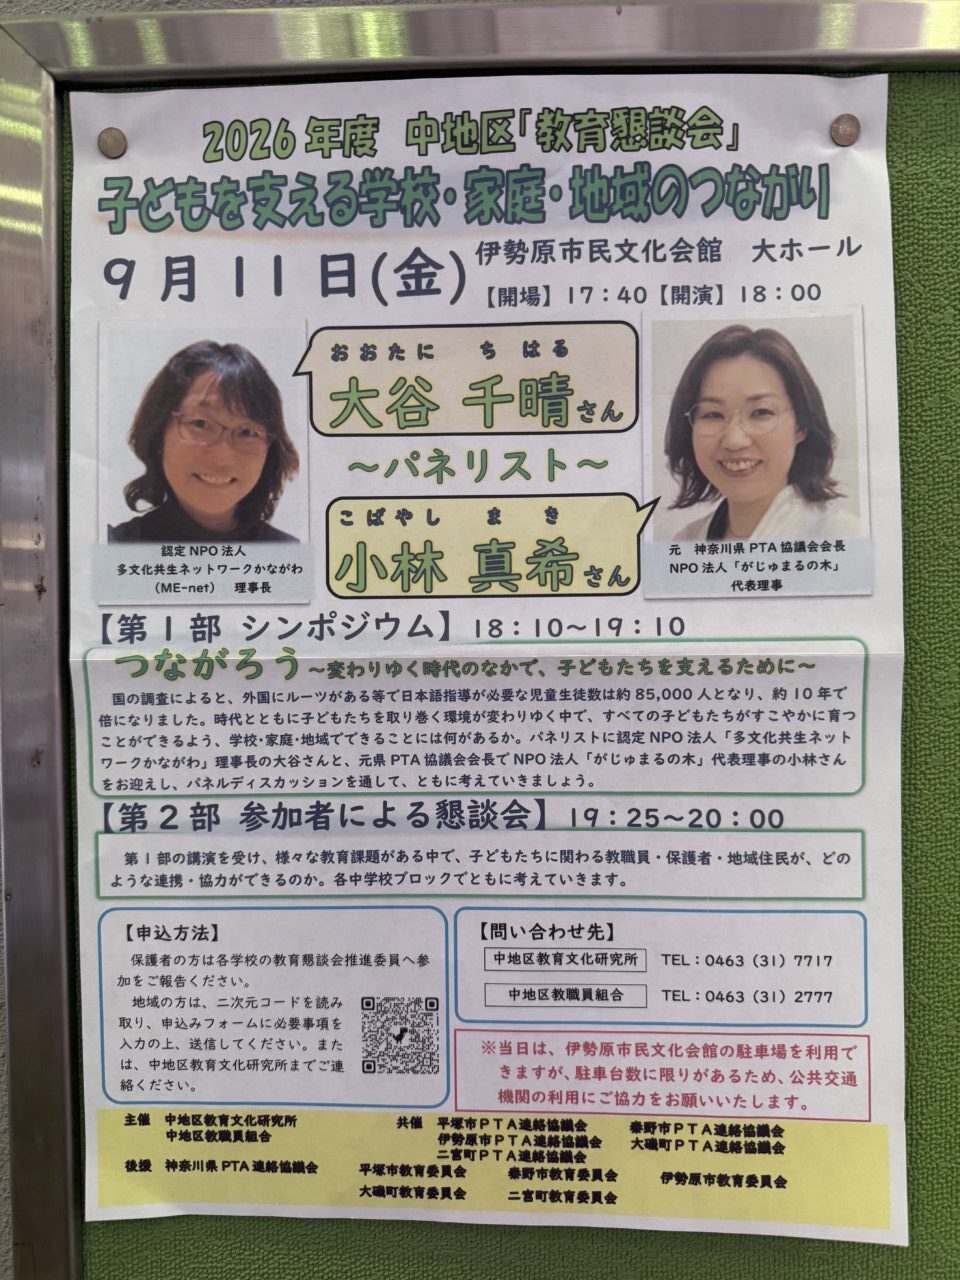 2026年度 中地区「教育懇談会」
子どもを支える学校・家庭・地域のつながり
9月11日(金)
伊勢原市民文化会館 大ホール
【開場】17:40【開演】18:00
おおたに ちはる
大谷 千晴さん
～パネリスト～
こばやし まき
小林 真希さん
認定NPO法人
多文化共生ネットワークかながわ
(ME-net) 理事長
元 神奈川県PTA協議会会長
NPO法人「がじゅまるの木」
代表理事
【第1部 シンポジウム】18:10～19:10
つながろう ～変わりゆく時代のなかで、子どもたちを支えるために～
国の調査によると、外国にルーツがある等で日本語指導が必要な児童生徒数は約85,000人となり、約10年で
倍になりました。時代とともに子どもたちを取り巻く環境が変わりゆく中で、すべての子どもたちがすこやかに育つ
ことができるよう、学校・家庭・地域でできることには何があるか。パネリストに認定NPO法人「多文化共生ネット
ワークかながわ」理事長の大谷さんと、元県PTA協議会会長でNPO法人「がじゅまるの木」代表理事の小林さん
をお迎えし、パネルディスカッションを通して、ともに考えていきましょう。
【第2部 参加者による懇談会】19:25～20:00
第1部の講演を受け、様々な教育課題がある中で、子どもたちに関わる教職員・保護者・地域住民が、どの
ような連携・協力ができるのか。各中学校ブロックでともに考えていきます。
【申込方法】
保護者の方は各学校の教育懇談会推進委員へ参
加をご報告ください。
地域の方は、二次元コードを読み
取り、申込みフォームに必要事項を
入力の上、送信してください。また
は、中地区教育文化研究所までご連
絡ください。
【問い合わせ先】
中地区教育文化研究所 TEL:0463(31)7717
中地区教職員組合 TEL:0463(31)2777
※当日は、伊勢原市民文化会館の駐車場を利用で
きますが、駐車台数に限りがあるため、公共交通
機関の利用にご協力をお願いいたします。
主催 中地区教育文化研究所
中地区教職員組合
共催 平塚市PTA連絡協議会 秦野市PTA連絡協議会
伊勢原市PTA連絡協議会 大磯町PTA連絡協議会
二宮町PTA連絡協議会
後援 神奈川県PTA連絡協議会 平塚市教育委員会 秦野市教育委員会 伊勢原市教育委員会
大磯町教育委員会 二宮町教育委員会